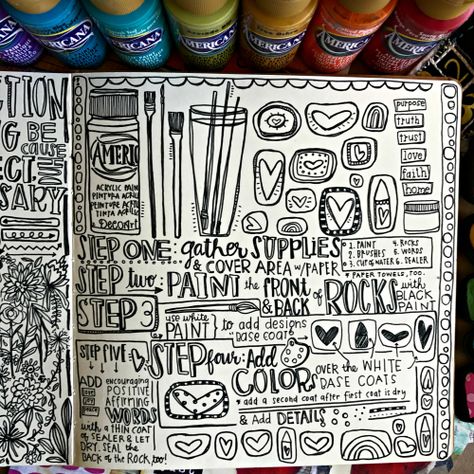 AMERICANA
AMERICANA
AMERICANA
AMERICANA
AMERICANA
AMERICANA
CTION
NG BE
cause
ECT:
SARY
AMERIC
ACRYLIC PAINT
PINTURA ACRÍLIC
PEINTURE ACRYLIC
TINTA ACRÍLIC
DecoArt
purpose
truth
trust
love
faith
home
STEP ONE: gather SUPPLIES
& COVER AREA w/PAPER
1. PAINT 4. ROCKS
2. BRUSHES 5. WORDS
3. CUP of WATER 6. SEALER
& PAPER TOWELS, TOO.
STEP two: PAINT the FRONT & BACK of ROCKS with BLACK PAINT
STEP 3
use white PAINT to add designs
BASE COAT
STEP four: Add COLORS OVER the WHITE BASE COATS
& add a second coat after first coat is dry
& Add DETAILS
STEP FIVE:
ADD encouraging
POSITIVE
AFFIRMING
WORDS
with a THIN COAT
of SEALER & LET
DRY. SEAL the
BACK of the ROCK, too!